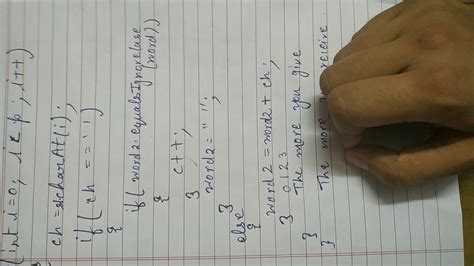 (int i=0; i<p; i++)
ch = s.charAt(i);
if ( ch == ' ')
{
if ( word2. equalsIgnoreCase
(word))
{
c++;
}
word2= " ";
}
else
{
word2 = word2 + ch;
}
0 1 2 3
The more you give
}
The more receive
}